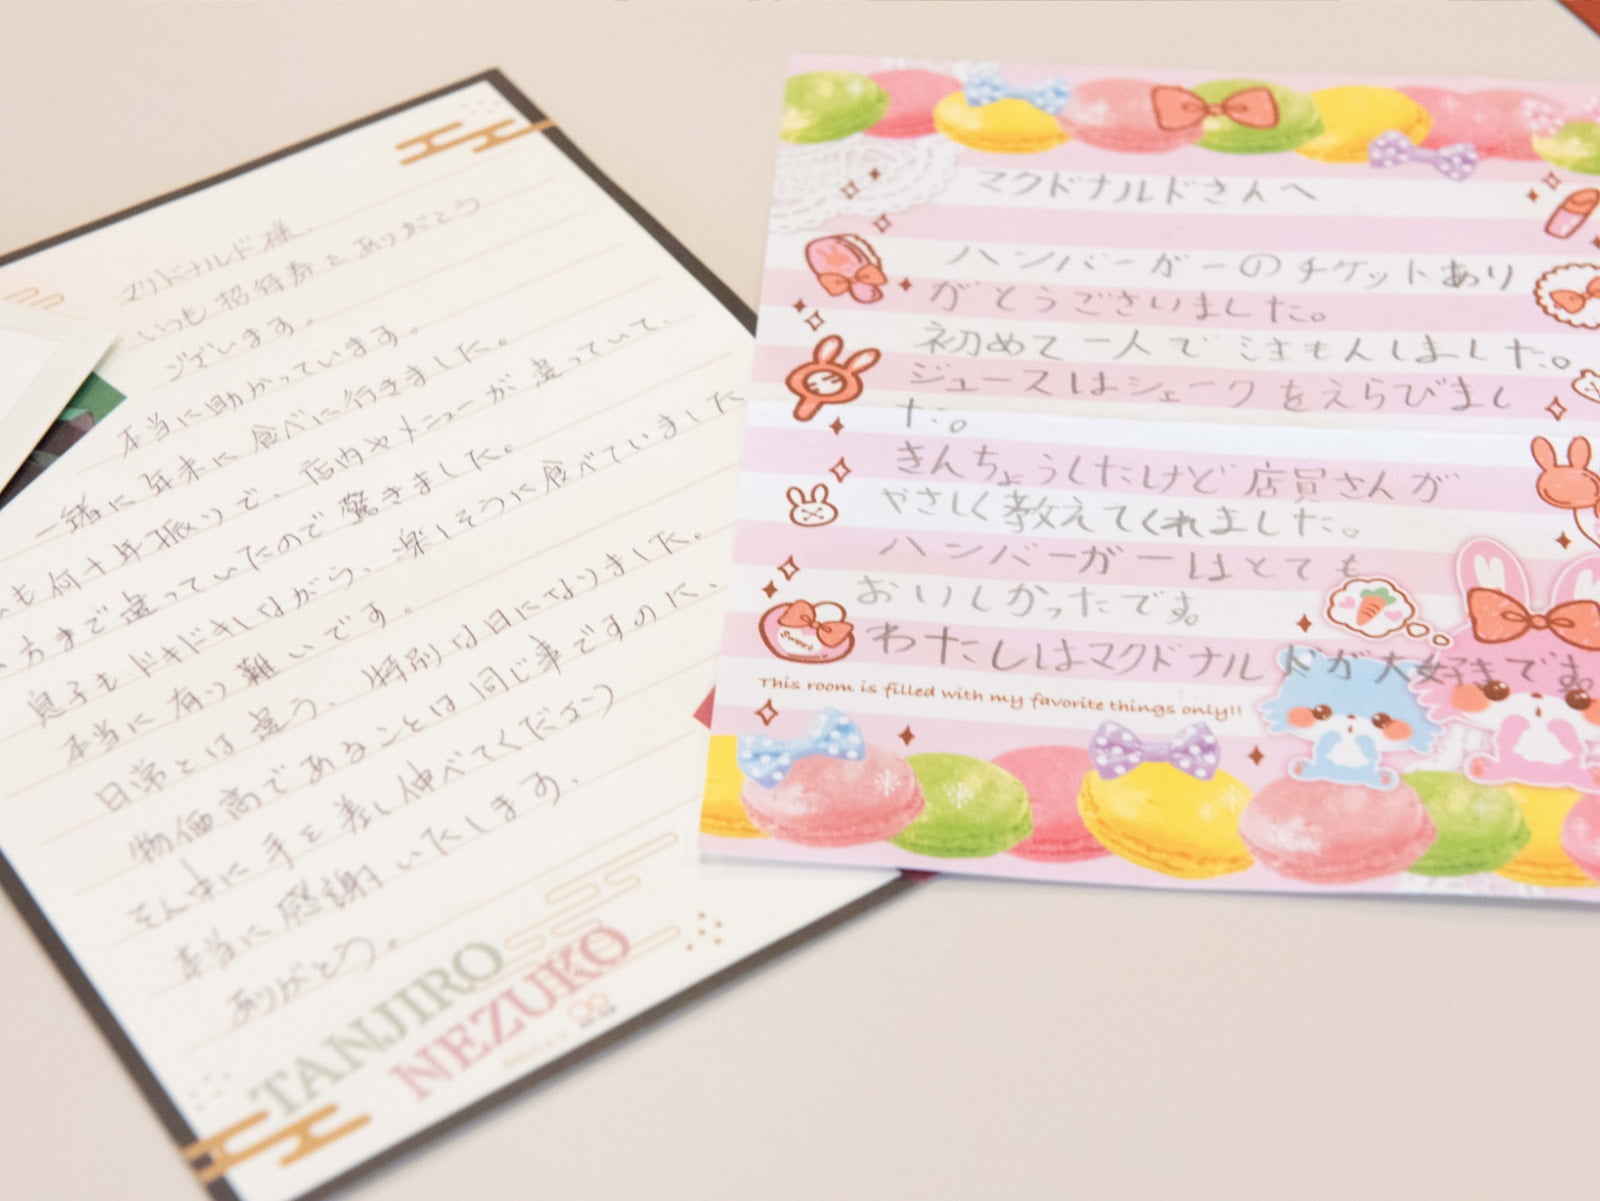 マクドナルド様.
いつも招待券をありがとう
ございます。
本当に助かっています。
一緒に年末に食べに行きました。
も何十年振りで、店内やメニューが違っていて、
方まで違っていたので驚きました。
息子もドキドキしながら、楽しそうに食べていました
本当に有り難いです。
日常とは違う、特別な日になりました。
物価高であることは同じ事ですのに、
そんな中に手を差し伸べてくださり
本当に感謝いたします。
ありがとう。
TANJIRO
NEZUKO
マクドナルドさんへ
ハンバーガーのチケットあり
がとうございました。
初めて一人でちゅもんしました。
ジュースはシェークをえらびまし
た。
きんちょうしたけど店員さんが
やさしく教えてくれました。
ハンバーガーはとても
おいしかったです。
わたしはマクドナルドが大好きです。
Sweet
This room is filled with my favorite things only!!